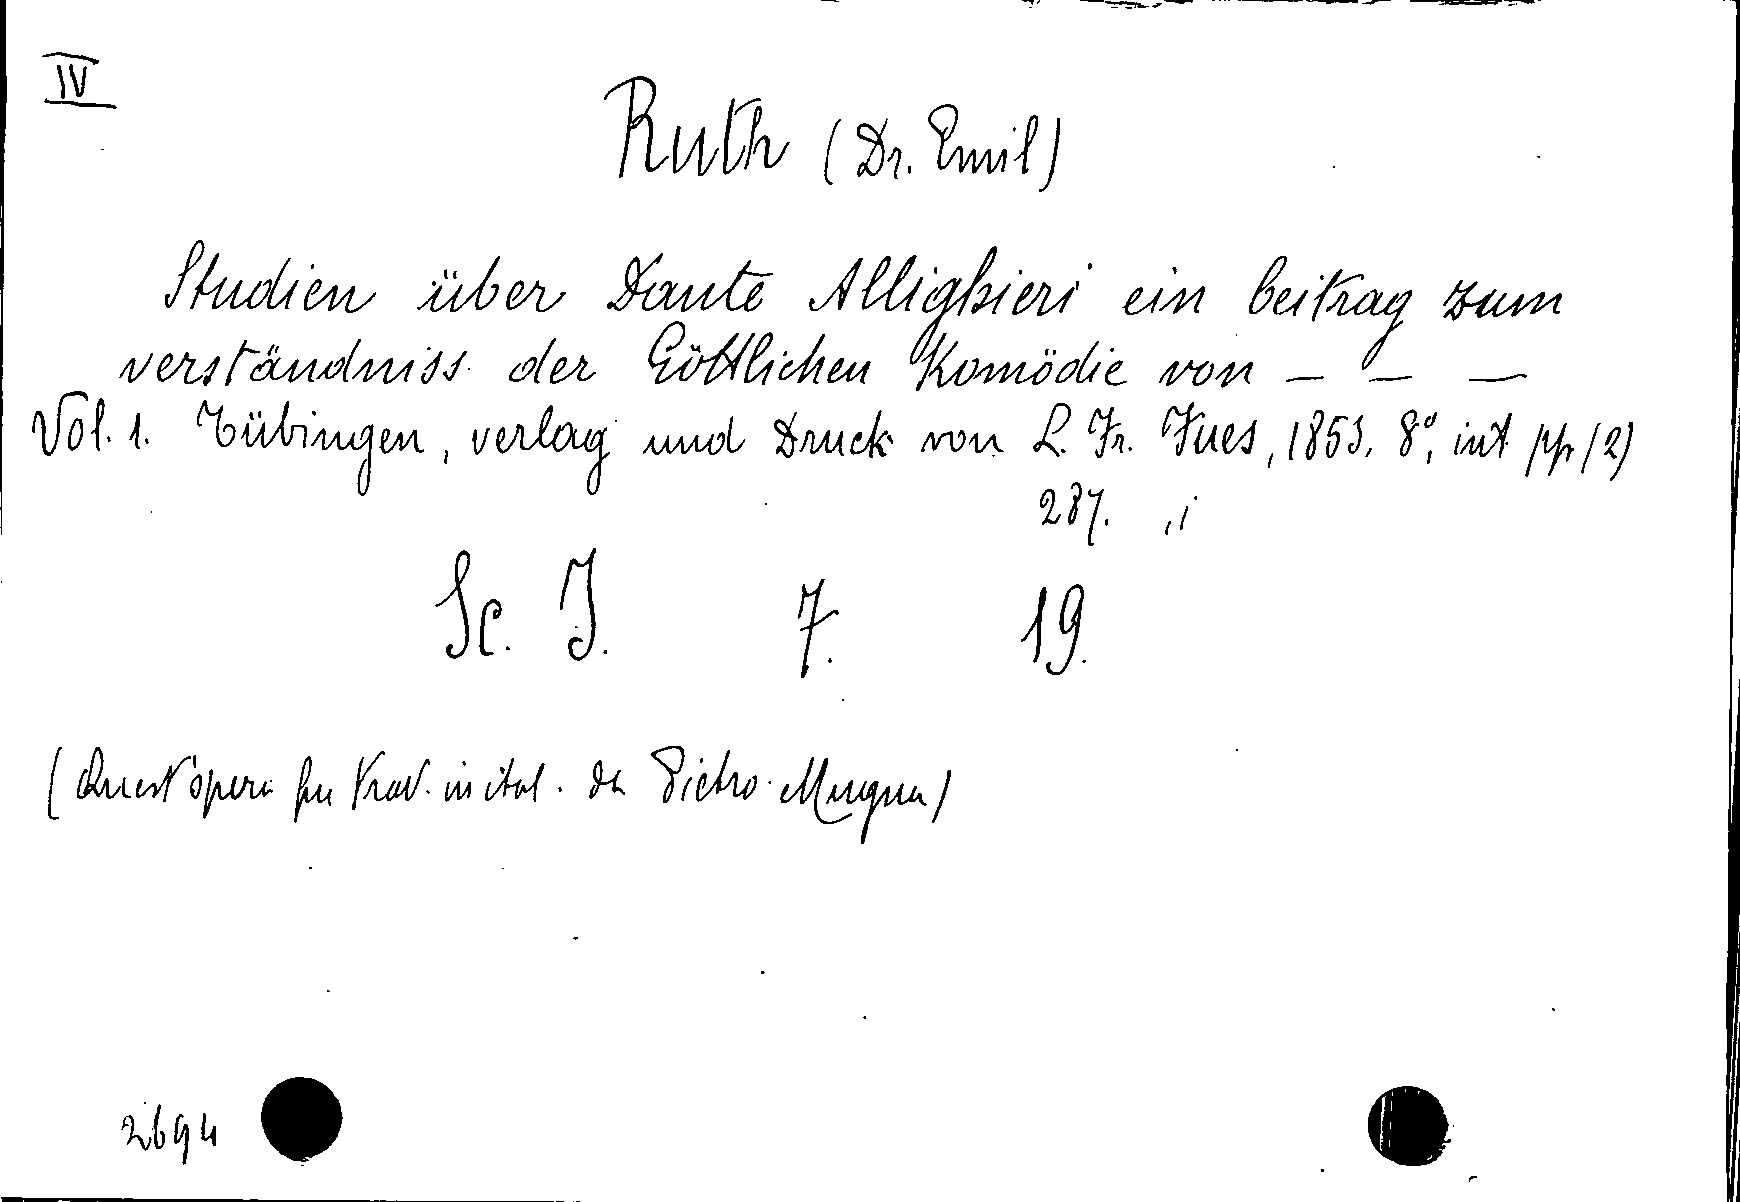 IV
Ruth (Dr. Emil)
Studien über Dante Allighieri ein beitrag zum
verständniss der Göttlichen Komödie von — — —
Vol. 1. Tübingen, verlag und Druck von L. Fr. Fues, 1853. 8°, int pp (2)
287.
Sc. I. 7. 19.
(Quest'opera fu trad. in ital. da Pietro Mugna)
2694